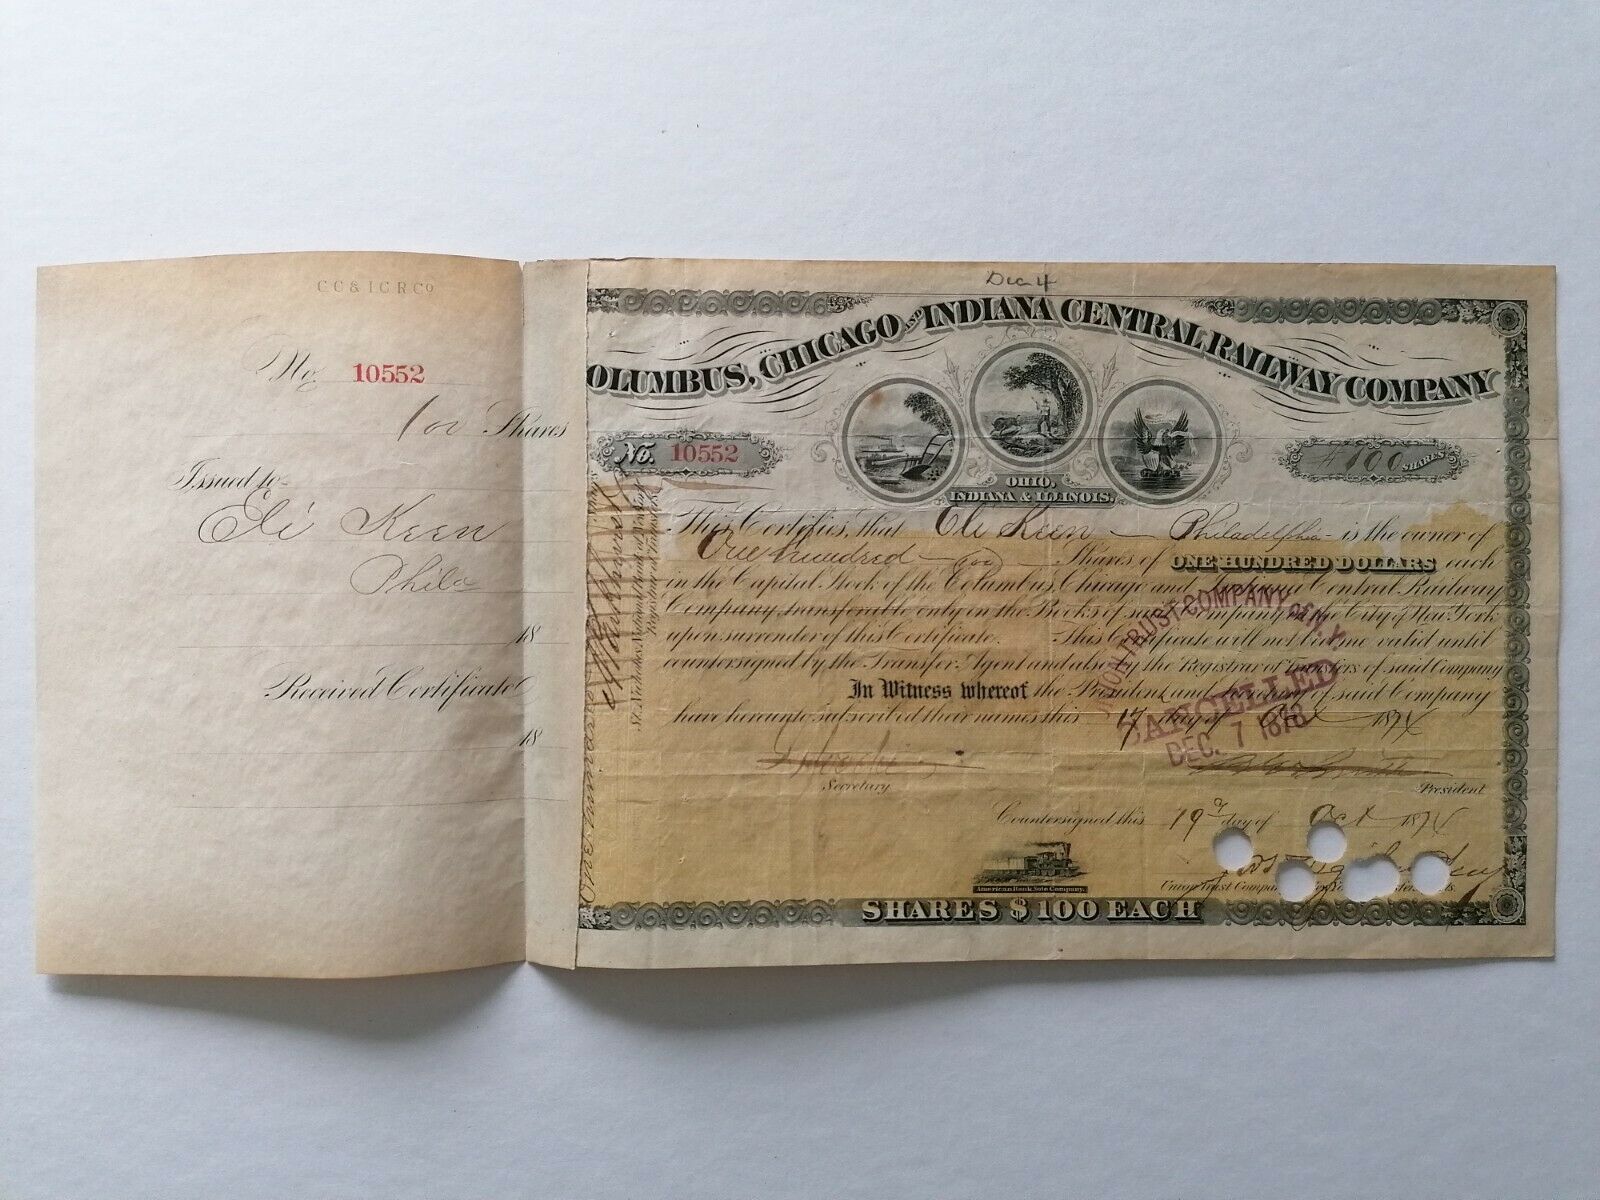 CC & ICR Co
No. 10552
100 Shares
Issued to
Eli Keen
Phila
18
Received Certificate
18
Dec 4
OLUMBUS, CHICAGO AND INDIANA CENTRAL RAILWAY COMPANY
No. 10552
OHIO,
INDIANA & ILLINOIS.
100 SHARES
This Certifies, that Eli Keen Philadelphia is the owner of
One hundred Shares of ONE HUNDRED DOLLARS each
in the Capital Stock of the Columbus, Chicago and Indiana Central Railway
Company, transferable only on the Books of said Company in the City of New York
upon surrender of this Certificate. This Certificate will not become valid until
countersigned by the Transfer Agent and also by the Registrar of Transfers of said Company
In Witness whereof the President and Secretary of said Company
have hereunto subscribed their names this 17 day of Oct 1874
Secretary
President
UNION TRUST COMPANY OF N.Y.
CANCELLED
DEC. 7 1878
Countersigned this 19 day of Oct 1874
American Bank Note Company.
Union Trust Company
SHARES $100 EACH
Registrar of Transfers.